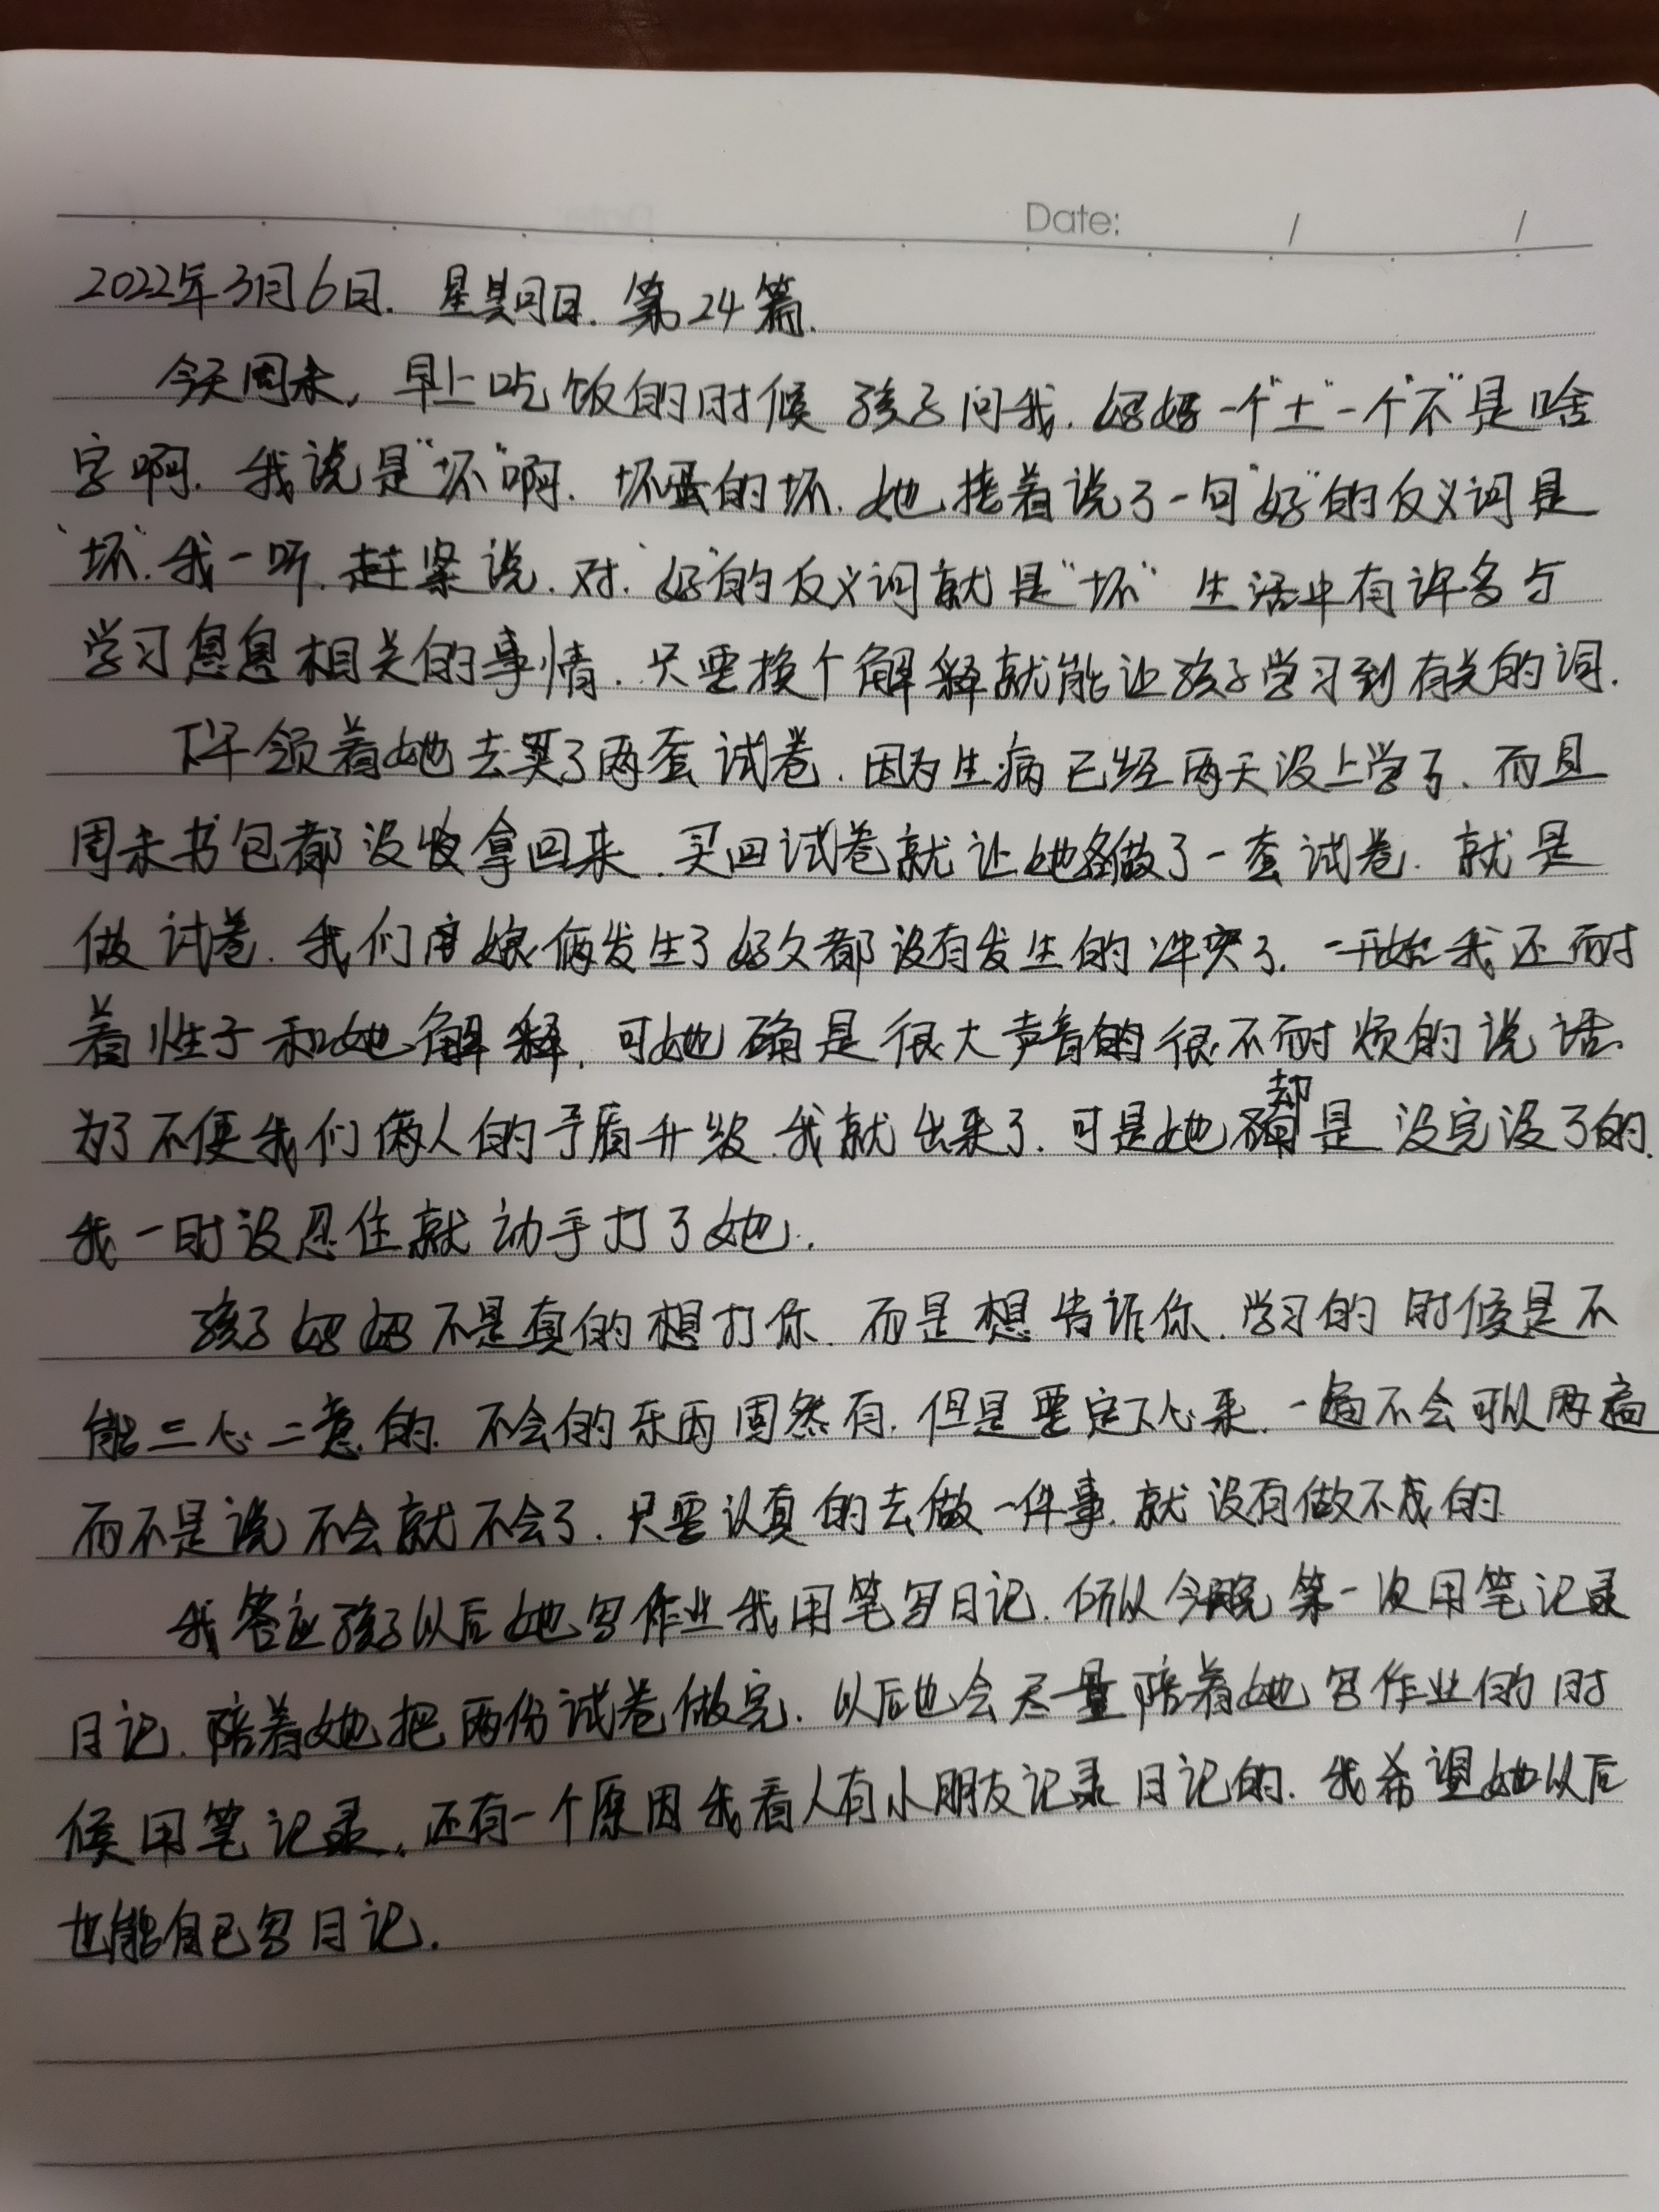 Date: / /
2022年3月6日. 星期日. 第24篇.
今天周末, 早上吃饭的时候孩子问我. 妈妈一个"土"一个"不"是啥
字啊. 我说是"坏"啊. 坏蛋的坏. 她接着说了一句"好"的反义词是
"坏". 我一听. 赶紧说. 对. "好"的反义词就是"坏" 生活中有许多与
学习息息相关的事情. 只要换个解释就能让孩子学习到有关的词.
下午领着她去买了两套试卷. 因为生病已经两天没上学了. 而且
周末书包都没收拿回来. 买回试卷就让她各做了一套试卷. 就是
做试卷. 我们娘俩发生了好久都没有发生的冲突了. 一开始我还耐
着性子和她解释. 可她确是很大声音的很不耐烦的说话.
为了不便我们俩人的矛盾升级. 我就出来了. 可是她却是没完没了的.
我一时没忍住就动手打了她.
孩子妈妈不是真的想打你. 而是想告诉你. 学习的时候是不
能三心二意的. 不会的东西固然有. 但是要定下心来. 一遍不会可以两遍
而不是说不会就不会了. 只要认真的去做一件事. 就没有做不成的.
我答应孩子以后她写作业我用笔写日记. 所以今晚第一次用笔记录
日记. 陪着她把两份试卷做完. 以后也会尽量陪着她写作业的时
候用笔记录. 还有一个原因我看人有小朋友记录日记的. 我希望她以后
也能自己写日记.